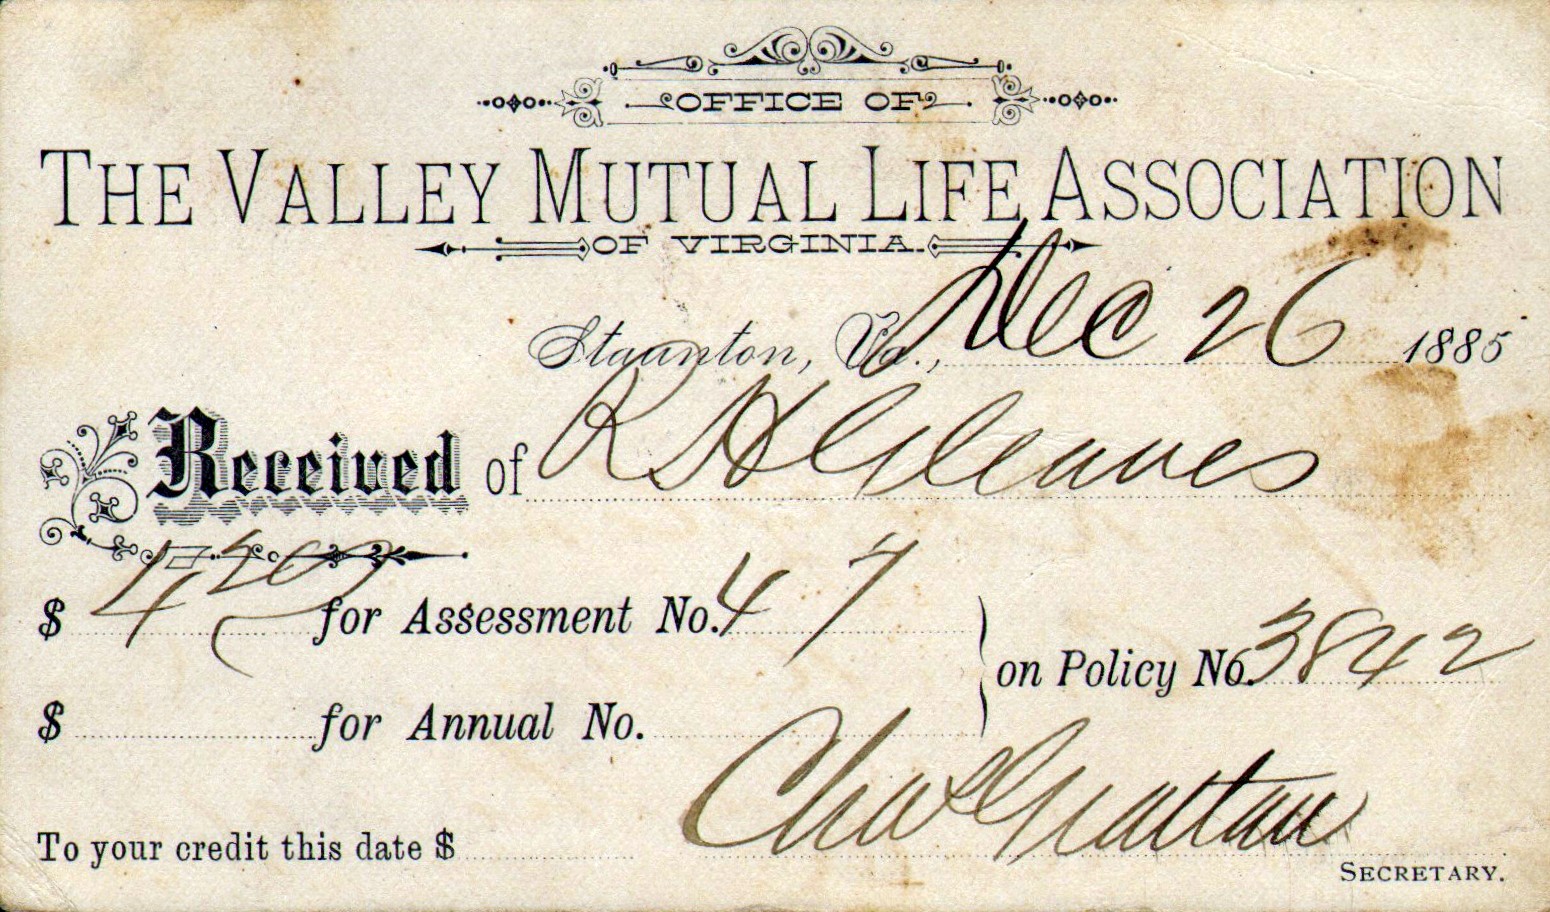 OFFICE OF
THE VALLEY MUTUAL LIFE ASSOCIATION
OF VIRGINIA.
Staunton, Va., Dec 26 1885
Received of R H Gleaves
$ 4 20 for Assessment No. 47
on Policy No. 3842
$ for Annual No.
Chas Grattan
To your credit this date $
SECRETARY.